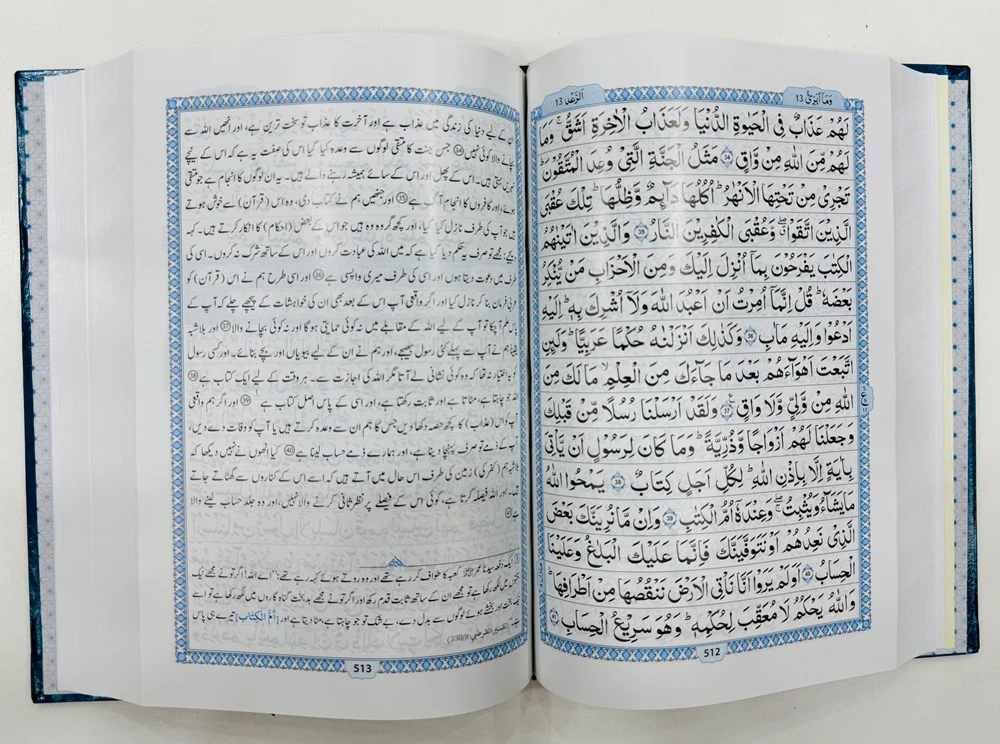 وَمَاۤ اُبَرِّئُ 13
اَلرَّعْد 13
لَهُمْ عَذَابٌ فِی الْحَیٰوةِ الدُّنْیَا وَلَعَذَابُ الْاٰخِرَةِ اَشَقُّ ۚ وَمَا
لَهُمْ مِّنَ اللّٰهِ مِنْ وَّاقٍ ﴿34﴾ مَثَلُ الْجَنَّةِ الَّتِیْ وُعِدَ الْمُتَّقُوْنَ ؕ
تَجْرِیْ مِنْ تَحْتِهَا الْاَنْهٰرُ ؕ اُكُلُهَا دَآىِٕمٌ وَّظِلُّهَا ؕ تِلْكَ عُقْبَی
الَّذِیْنَ اتَّقَوْا ۖۗ وَّعُقْبَی الْكٰفِرِیْنَ النَّارُ ﴿35﴾ وَالَّذِیْنَ اٰتَیْنٰهُمُ
الْكِتٰبَ یَفْرَحُوْنَ بِمَاۤ اُنْزِلَ اِلَیْكَ وَمِنَ الْاَحْزَابِ مَنْ یُّنْكِرُ
بَعْضَهٗ ؕ قُلْ اِنَّمَاۤ اُمِرْتُ اَنْ اَعْبُدَ اللّٰهَ وَلَاۤ اُشْرِكَ بِهٖ ؕ اِلَیْهِ
اَدْعُوْا وَاِلَیْهِ مَاٰبِ ﴿36﴾ وَكَذٰلِكَ اَنْزَلْنٰهُ حُكْمًا عَرَبِیًّا ؕ وَلَىِٕنِ
اتَّبَعْتَ اَهْوَآءَهُمْ بَعْدَ مَا جَآءَكَ مِنَ الْعِلْمِ ۙ مَا لَكَ مِنَ
اللّٰهِ مِنْ وَّلِیٍّ وَّلَا وَاقٍ ﴿37﴾ وَلَقَدْ اَرْسَلْنَا رُسُلًا مِّنْ قَبْلِكَ
وَجَعَلْنَا لَهُمْ اَزْوَاجًا وَّذُرِّیَّةً ؕ وَمَا كَانَ لِرَسُوْلٍ اَنْ یَّاْتِیَ
بِاٰیَةٍ اِلَّا بِاِذْنِ اللّٰهِ ؕ لِكُلِّ اَجَلٍ كِتَابٌ ﴿38﴾ یَمْحُوا اللّٰهُ
مَا یَشَآءُ وَیُثْبِتُ ۖۚ وَعِنْدَهٗۤ اُمُّ الْكِتٰبِ ﴿39﴾ وَاِنْ مَّا نُرِیَنَّكَ بَعْضَ
الَّذِیْ نَعِدُهُمْ اَوْ نَتَوَفَّیَنَّكَ فَاِنَّمَا عَلَیْكَ الْبَلٰغُ وَعَلَیْنَا
الْحِسَابُ ﴿40﴾ اَوَلَمْ یَرَوْا اَنَّا نَاْتِی الْاَرْضَ نَنْقُصُهَا مِنْ اَطْرَافِهَا ؕ
وَاللّٰهُ یَحْكُمُ لَا مُعَقِّبَ لِحُكْمِهٖ ؕ وَهُوَ سَرِیْعُ الْحِسَابِ ﴿41﴾
512
ان کے لیے دنیا کی زندگی میں عذاب ہے اور آخرت کا عذاب تو سخت ترین ہے، اور انھیں اللہ سے
بچانے والا کوئی نہیں ﴿34﴾ جس جنت کا متقی لوگوں سے وعدہ کیا گیا اس کی صفت یہ ہے کہ اس کے نیچے
نہریں بہتی ہیں۔ اس کے پھل اور اس کے سائے ہمیشہ رہنے والے ہیں۔ یہ ان لوگوں کا انجام ہے جو متقی
ہوئے، اور کافروں کا انجام آگ ہے ﴿35﴾ اور جنھیں ہم نے کتاب دی، وہ اس (قرآن) سے خوش ہوتے
ہیں جو آپ کی طرف نازل کیا گیا، اور کچھ گروہ وہ ہیں جو اس کے بعض (احکام) کا انکار کرتے ہیں۔ کہہ
دیجیے: مجھے تو صرف یہ حکم دیا گیا ہے کہ میں اللہ کی عبادت کروں اور اس کے ساتھ شرک نہ کروں۔ اسی کی
میں دعوت دیتا ہوں اور اسی کی طرف میری واپسی ہے ﴿36﴾ اور اسی طرح ہم نے اس (قرآن) کو
عربی فرمان بنا کر نازل کیا اور اگر واقعی آپ اس کے بعد بھی ان کی خواہشات کے پیچھے چلے کہ آپ کے
پاس علم آ چکا تو آپ کے لیے اللہ کے مقابلے میں نہ کوئی حمایتی ہوگا اور نہ کوئی بچانے والا ﴿37﴾ اور بلاشبہ
یقیناً ہم نے آپ سے پہلے کئی رسول بھیجے، اور ہم نے ان کے لیے بیویاں اور بچے بنائے۔ اور کسی رسول
کو یہ اختیار نہ تھا کہ وہ کوئی نشانی لے آتا مگر اللہ کی اجازت سے۔ ہر وقت کے لیے ایک کتاب ہے ﴿38﴾
اللہ جو چاہتا ہے، مٹاتا ہے اور ثابت رکھتا ہے، اور اسی کے پاس اصل کتاب ہے ﴿39﴾ اور اگر ہم واقعی
آپ کو اس (عذاب) کا کچھ حصہ دکھا دیں جس کا ہم ان سے وعدہ کرتے ہیں یا آپ کو وفات دے دیں،
آپ کے ذمے تو صرف پہنچا دینا ہے، اور ہمارے ذمے حساب لینا ہے ﴿40﴾ کیا انھوں نے نہیں دیکھا کہ
بلاشبہ ہم (کفر کی) زمین کی طرف اس حال میں آتے ہیں کہ اسے اس کے کناروں سے گھٹاتے جاتے
اور اللہ فیصلہ کرتا ہے، کوئی اس کے فیصلے پر نظر ثانی کرنے والا نہیں، اور وہ جلد حساب لینے والا
ہے ﴿41﴾
ایک دفعہ سیدنا عمر کعبہ کا طواف کر رہے تھے اور وہ روتے ہوئے کہہ رہے تھے: "اے اللہ! اگر تو نے مجھے نیک
لکھا ہے تو مجھے ان کے ساتھ ثابت قدم رکھ اور اگر تو نے مجھے بدبخت گناہ گاروں میں لکھ رکھا ہے تو اسے
اور بخشے ہوئے لوگوں سے بدل دے، بے شک تو جو چاہتا ہے، مٹا دیتا ہے اور [اُمُّ الْكِتَاب] تیرے ہی پاس
(تفسير القرطبي: 330/9)
513